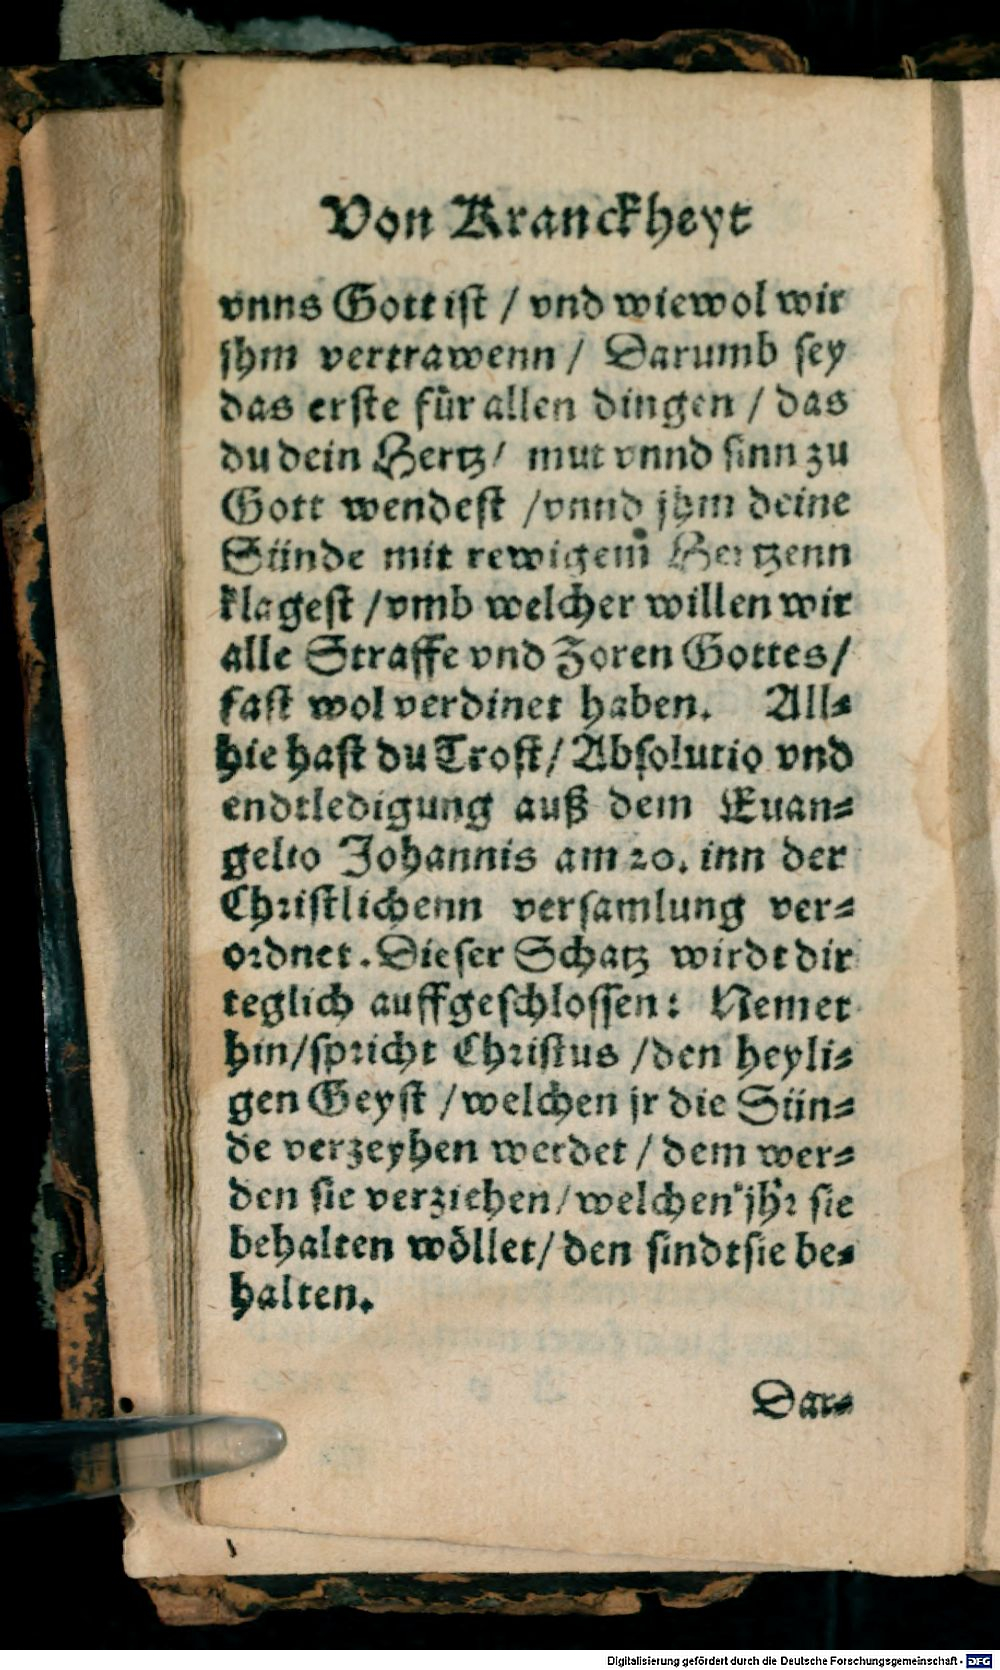 Von Kranckheyt
vnns Gott ist / vnd wiewol wir
jhm vertrawenn / Darumb sey
das erste für allen dingen / das
du dein Hertz / mut vnnd sinn zu
Gott wendest / vnnd jhm deine
Sünde mit rewigem Hertzenn
klagest / vmb welcher willen wir
alle Straffe vnd Zoren Gottes /
fast wol verdinet haben. All⸗
hie hast du Trost / Absolutio vnd
endtledigung auß dem Euan⸗
gelio Johannis am 20. inn der
Christlichenn versamlung ver⸗
ordnet. Dieser Schatz wirdt dir
teglich auffgeschlossen: Nemet
hin / spricht Christus / den heyli⸗
gen Geyst / welchen jr die Sün⸗
de verzeyhen werdet / dem wer⸗
den sie verziehen / welchen jhr sie
behalten wöllet / den sindt sie be⸗
halten.
Dar⸗
Digitalisierung gefördert durch die Deutsche Forschungsgemeinschaft - DFG